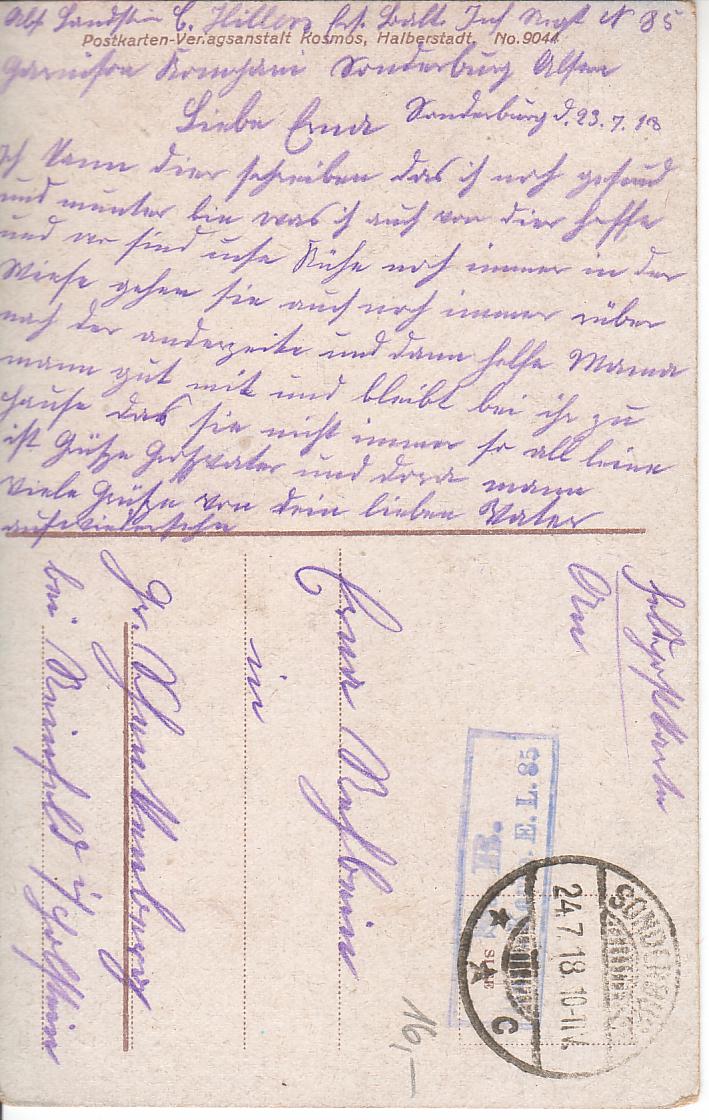 Abs. Landstm E. Hillers Ers. Batl. Inf Regt N 85
Postkarten-Verlagsanstalt Kosmos, Halberstadt, No. 9044
Garnison Kompani Sonderburg Alsen
Liebe Erna Sonderburg d. 23.7.18
Ich kann dier schreiben das ich noch gesund
und munter bin was ich auch von dier hoffe
und wo sind unse Kühe noch immer in der
Wiese gehen sie auch noch immer rüber
nach der anderzeite und dann helfe Mama
mann gut mit und bleibt bei ihr zu
hause das sie nicht immer so alleine
ist Grüße Großvater und dora mann
Viele Grüße von dein lieben Vater
aufwiedersehn
Feldpostkarte
An
Erna
in
Gr.
bei Reinfeld i/Holstein
E. L. 85
SONDERBURG
24.7.18.10-11V.
* * C
16,—